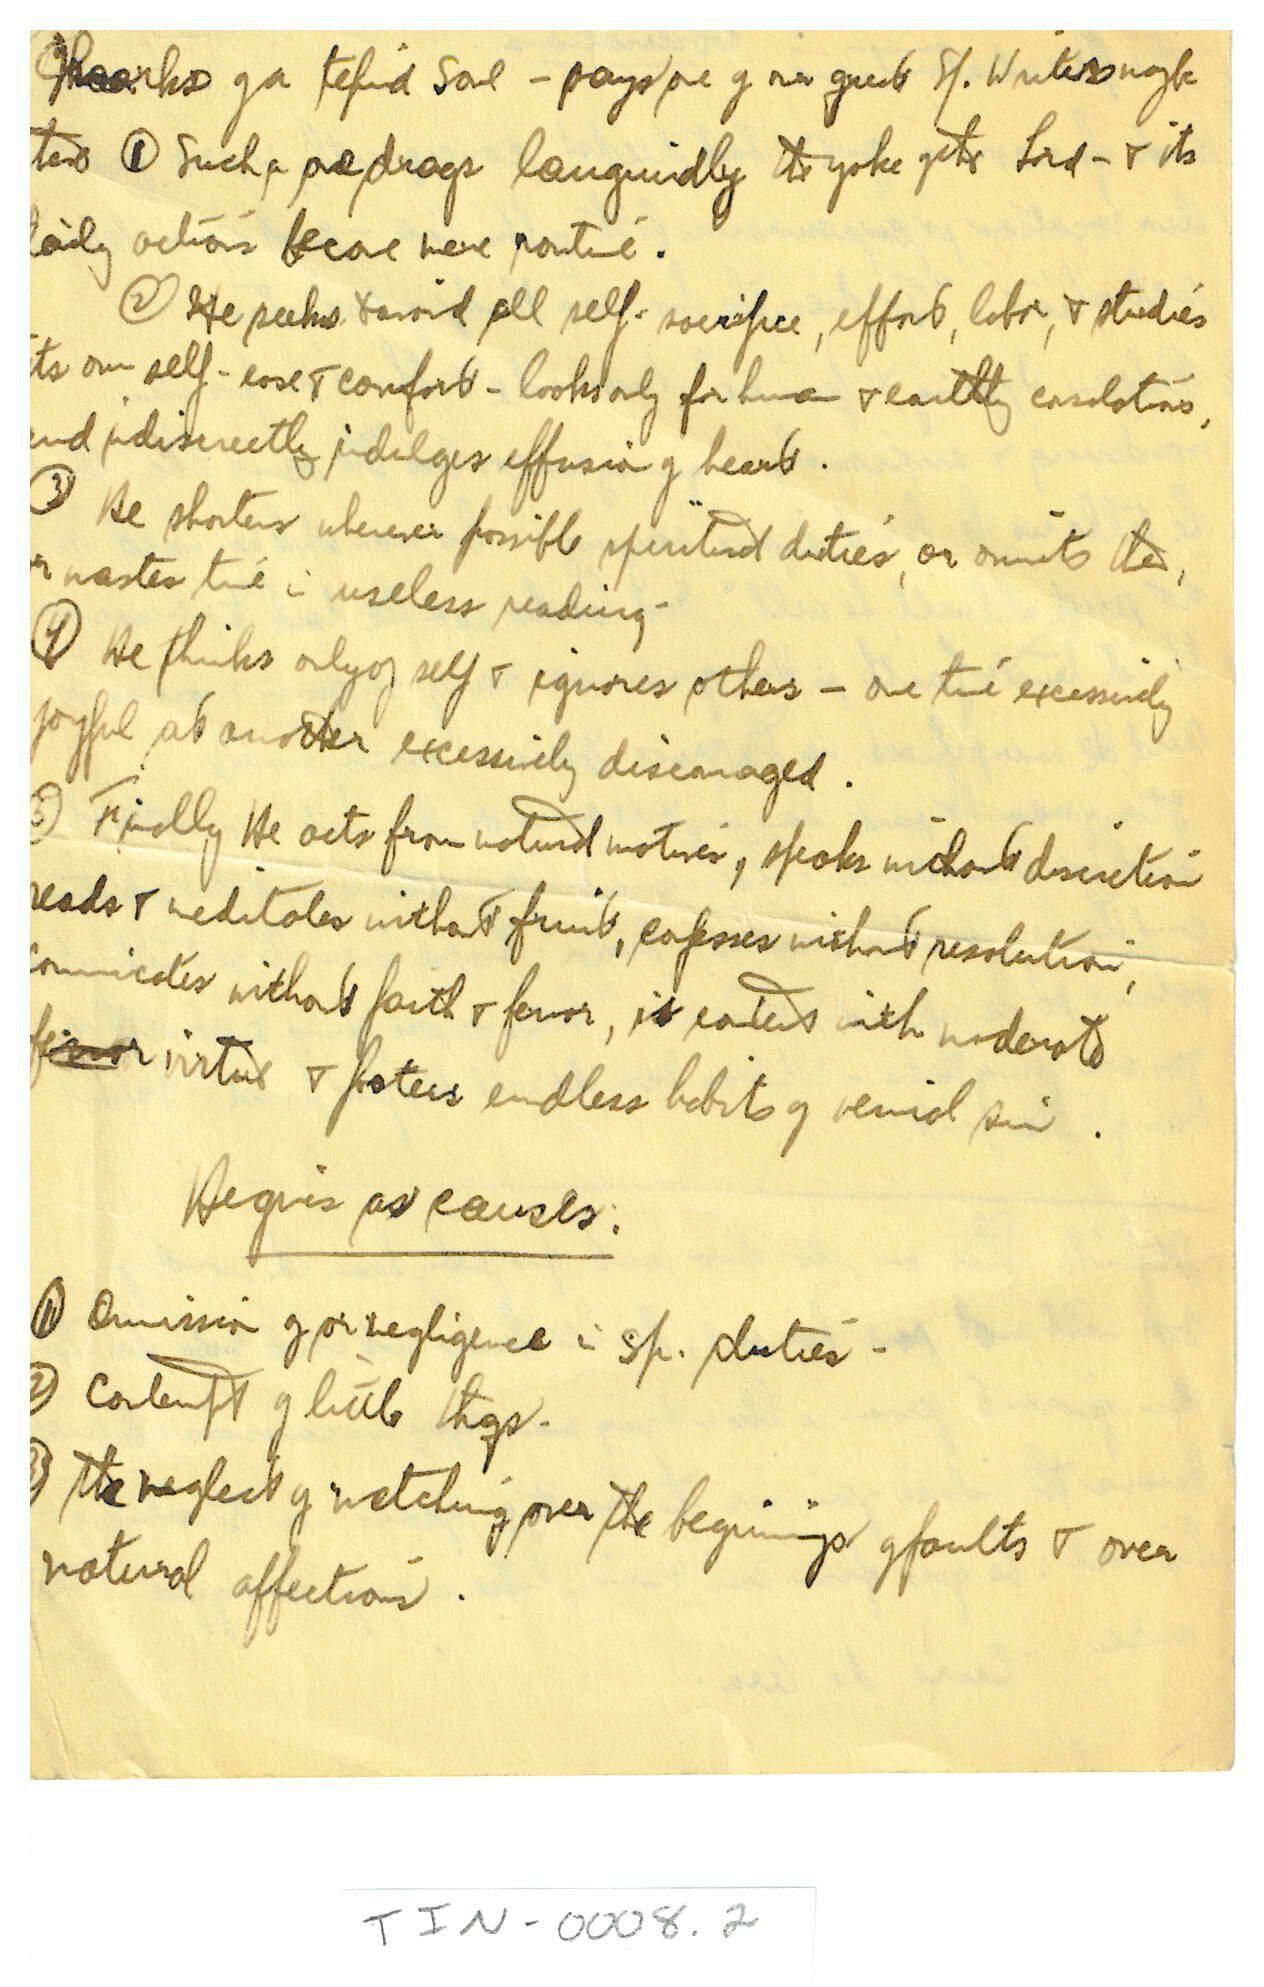 Marks of a tepid Soul – says one of our great Sp. Writers may be
these ① Such a one drags languidly the yoke of the Lord – & its
daily actions become mere routine.
② He seeks to avoid all self-sacrifice, effort, labor, & studies
its own self-ease & comfort – looks only for human & earthly consolations,
and indiscreetly indulges effusion of heart.
③ He shortens wherever possible spiritual duties, or omits them,
or wastes time in useless reading-
④ He thinks only of self & ignores others – one time excessively
joyful at another excessively discouraged.
⑤ Finally He acts from natural motives, speaks without discretion
reads & meditates without fruit, confesses without resolution,
communicates without faith & fervor, is content with moderate
virtue & fosters endless habits of venial sin.
He gives as causes:
① Omission of or negligence in Sp. duties -
② Contempt of little things.
③ The neglect of watching over the beginnings of faults & over
natural affections.
TIN-0008.2